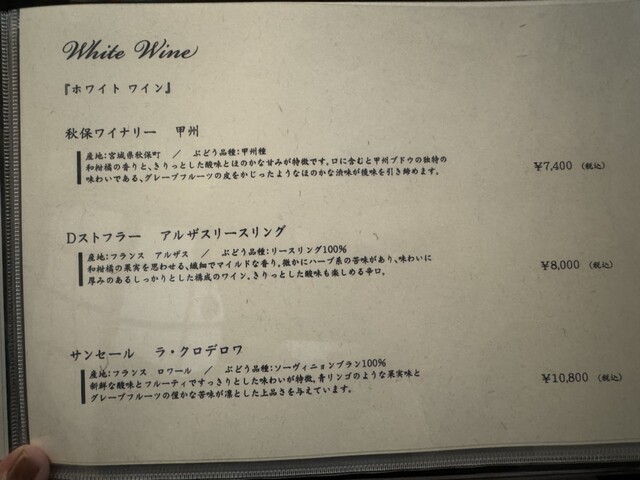 White Wine
『ホワイト ワイン』
秋保ワイナリー 甲州
産地:宮城県秋保町 / ぶどう品種:甲州種
和柑橘の香りと、きりっとした酸味とほのかな甘みが特徴です。口に含むと甲州ブドウの独特の
味わいである、グレープフルーツの皮をかじったようなほのかな渋味が後味を引き締めます。
¥7,400 (税込)
Dストフラー アルザスリースリング
産地:フランス アルザス / ぶどう品種:リースリング100%
和柑橘の果実を思わせる、繊細でマイルドな香り。微かにハーブ系の苦味があり、味わいに
厚みのあるしっかりとした構成のワイン。きりっとした酸味も楽しめる辛口。
¥8,000 (税込)
サンセール ラ・クロデロワ
産地:フランス ロワール / ぶどう品種:ソーヴィニョンブラン100%
新鮮な酸味とフルーティですっきりとした味わいが特徴。青リンゴのような果実味と
グレープフルーツの僅かな苦味が凛とした上品さを与えています。
¥10,800 (税込)